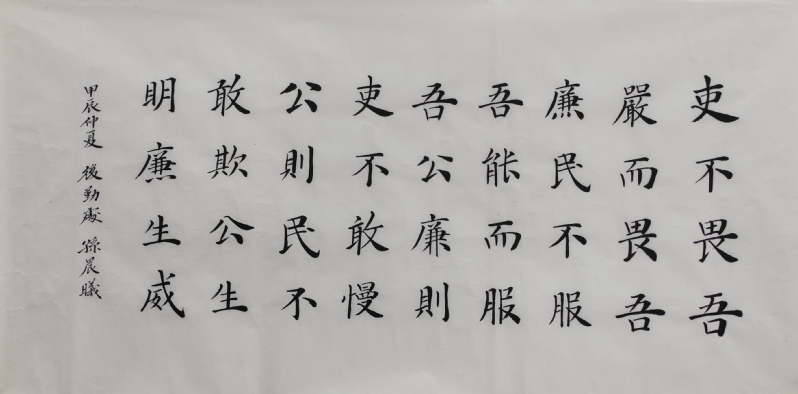 吏不畏吾
嚴而畏吾
廉民不服
吾能而服
吾公廉則
吏不敢慢
公則民不
敢欺公生
明廉生威
甲辰仲夏 後勤處 孫晨曦